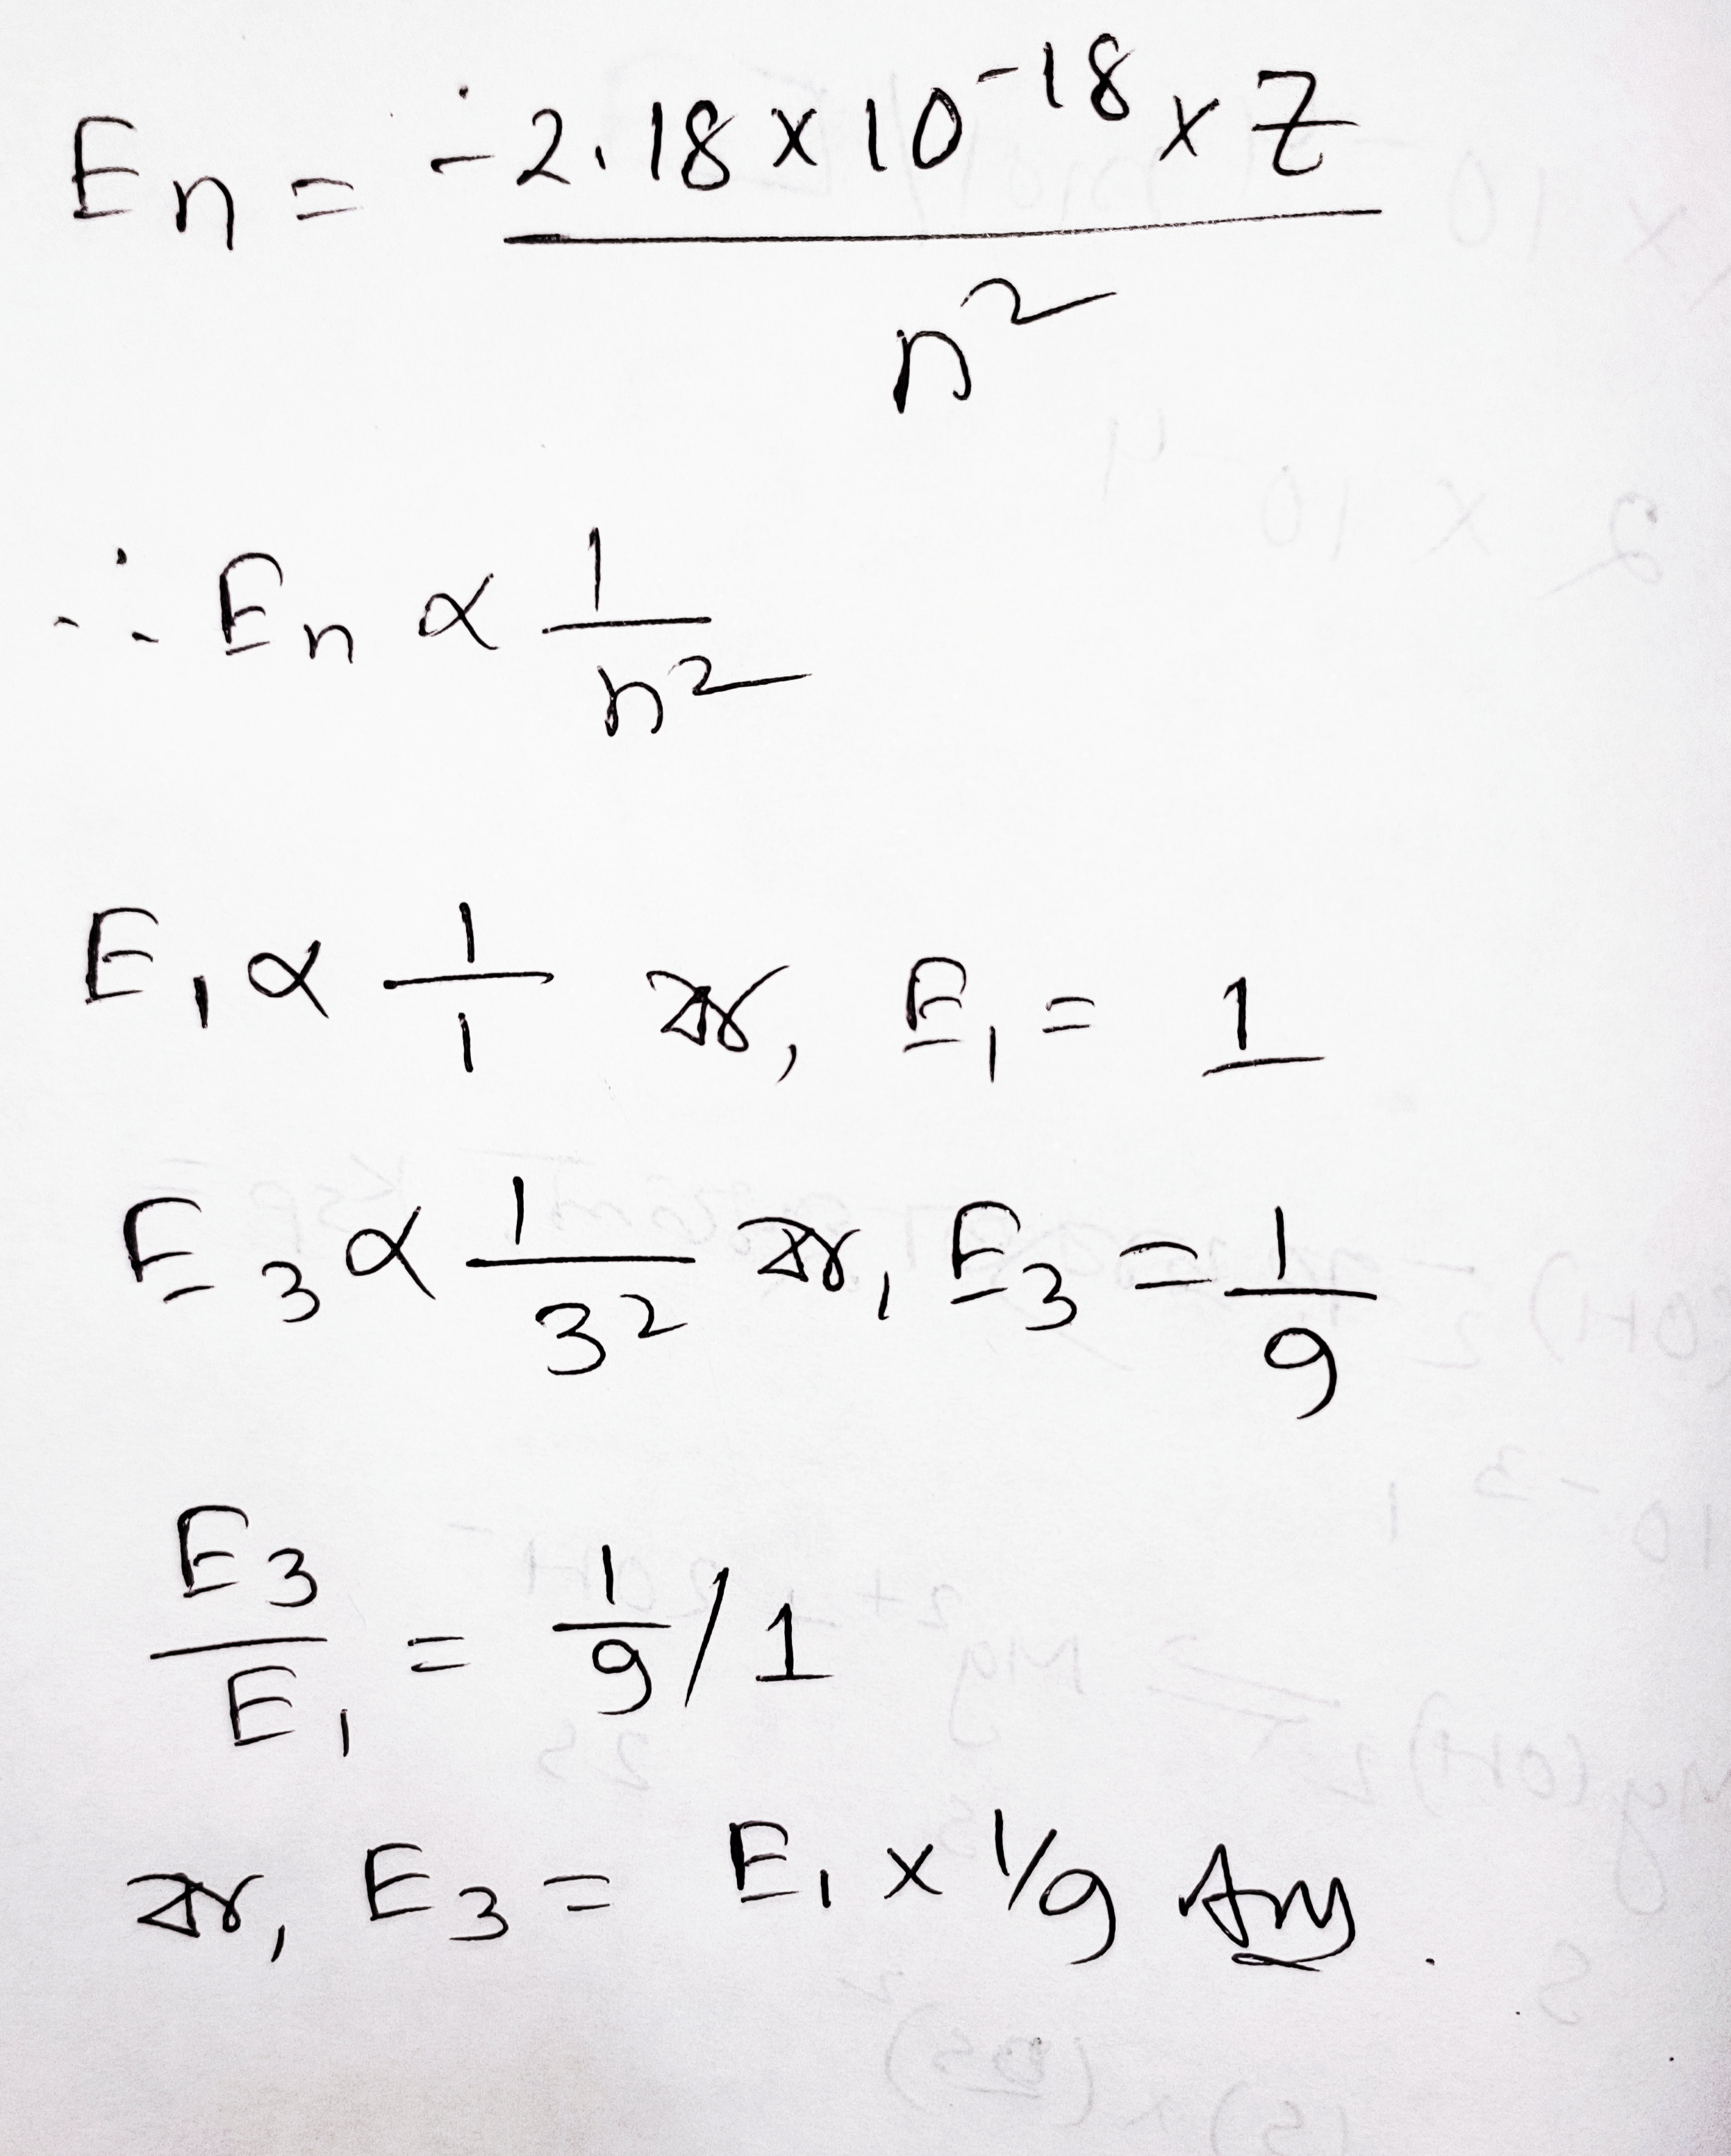 En = -2.18 × 10^-18 × Z / n^2
∴ En ∝ 1/n^2
E1 ∝ 1/1 বা, E1 = 1
E3 ∝ 1/3^2 বা, E3 = 1/9
E3/E1 = 1/9 / 1
বা, E3 = E1 × 1/9 Ans.